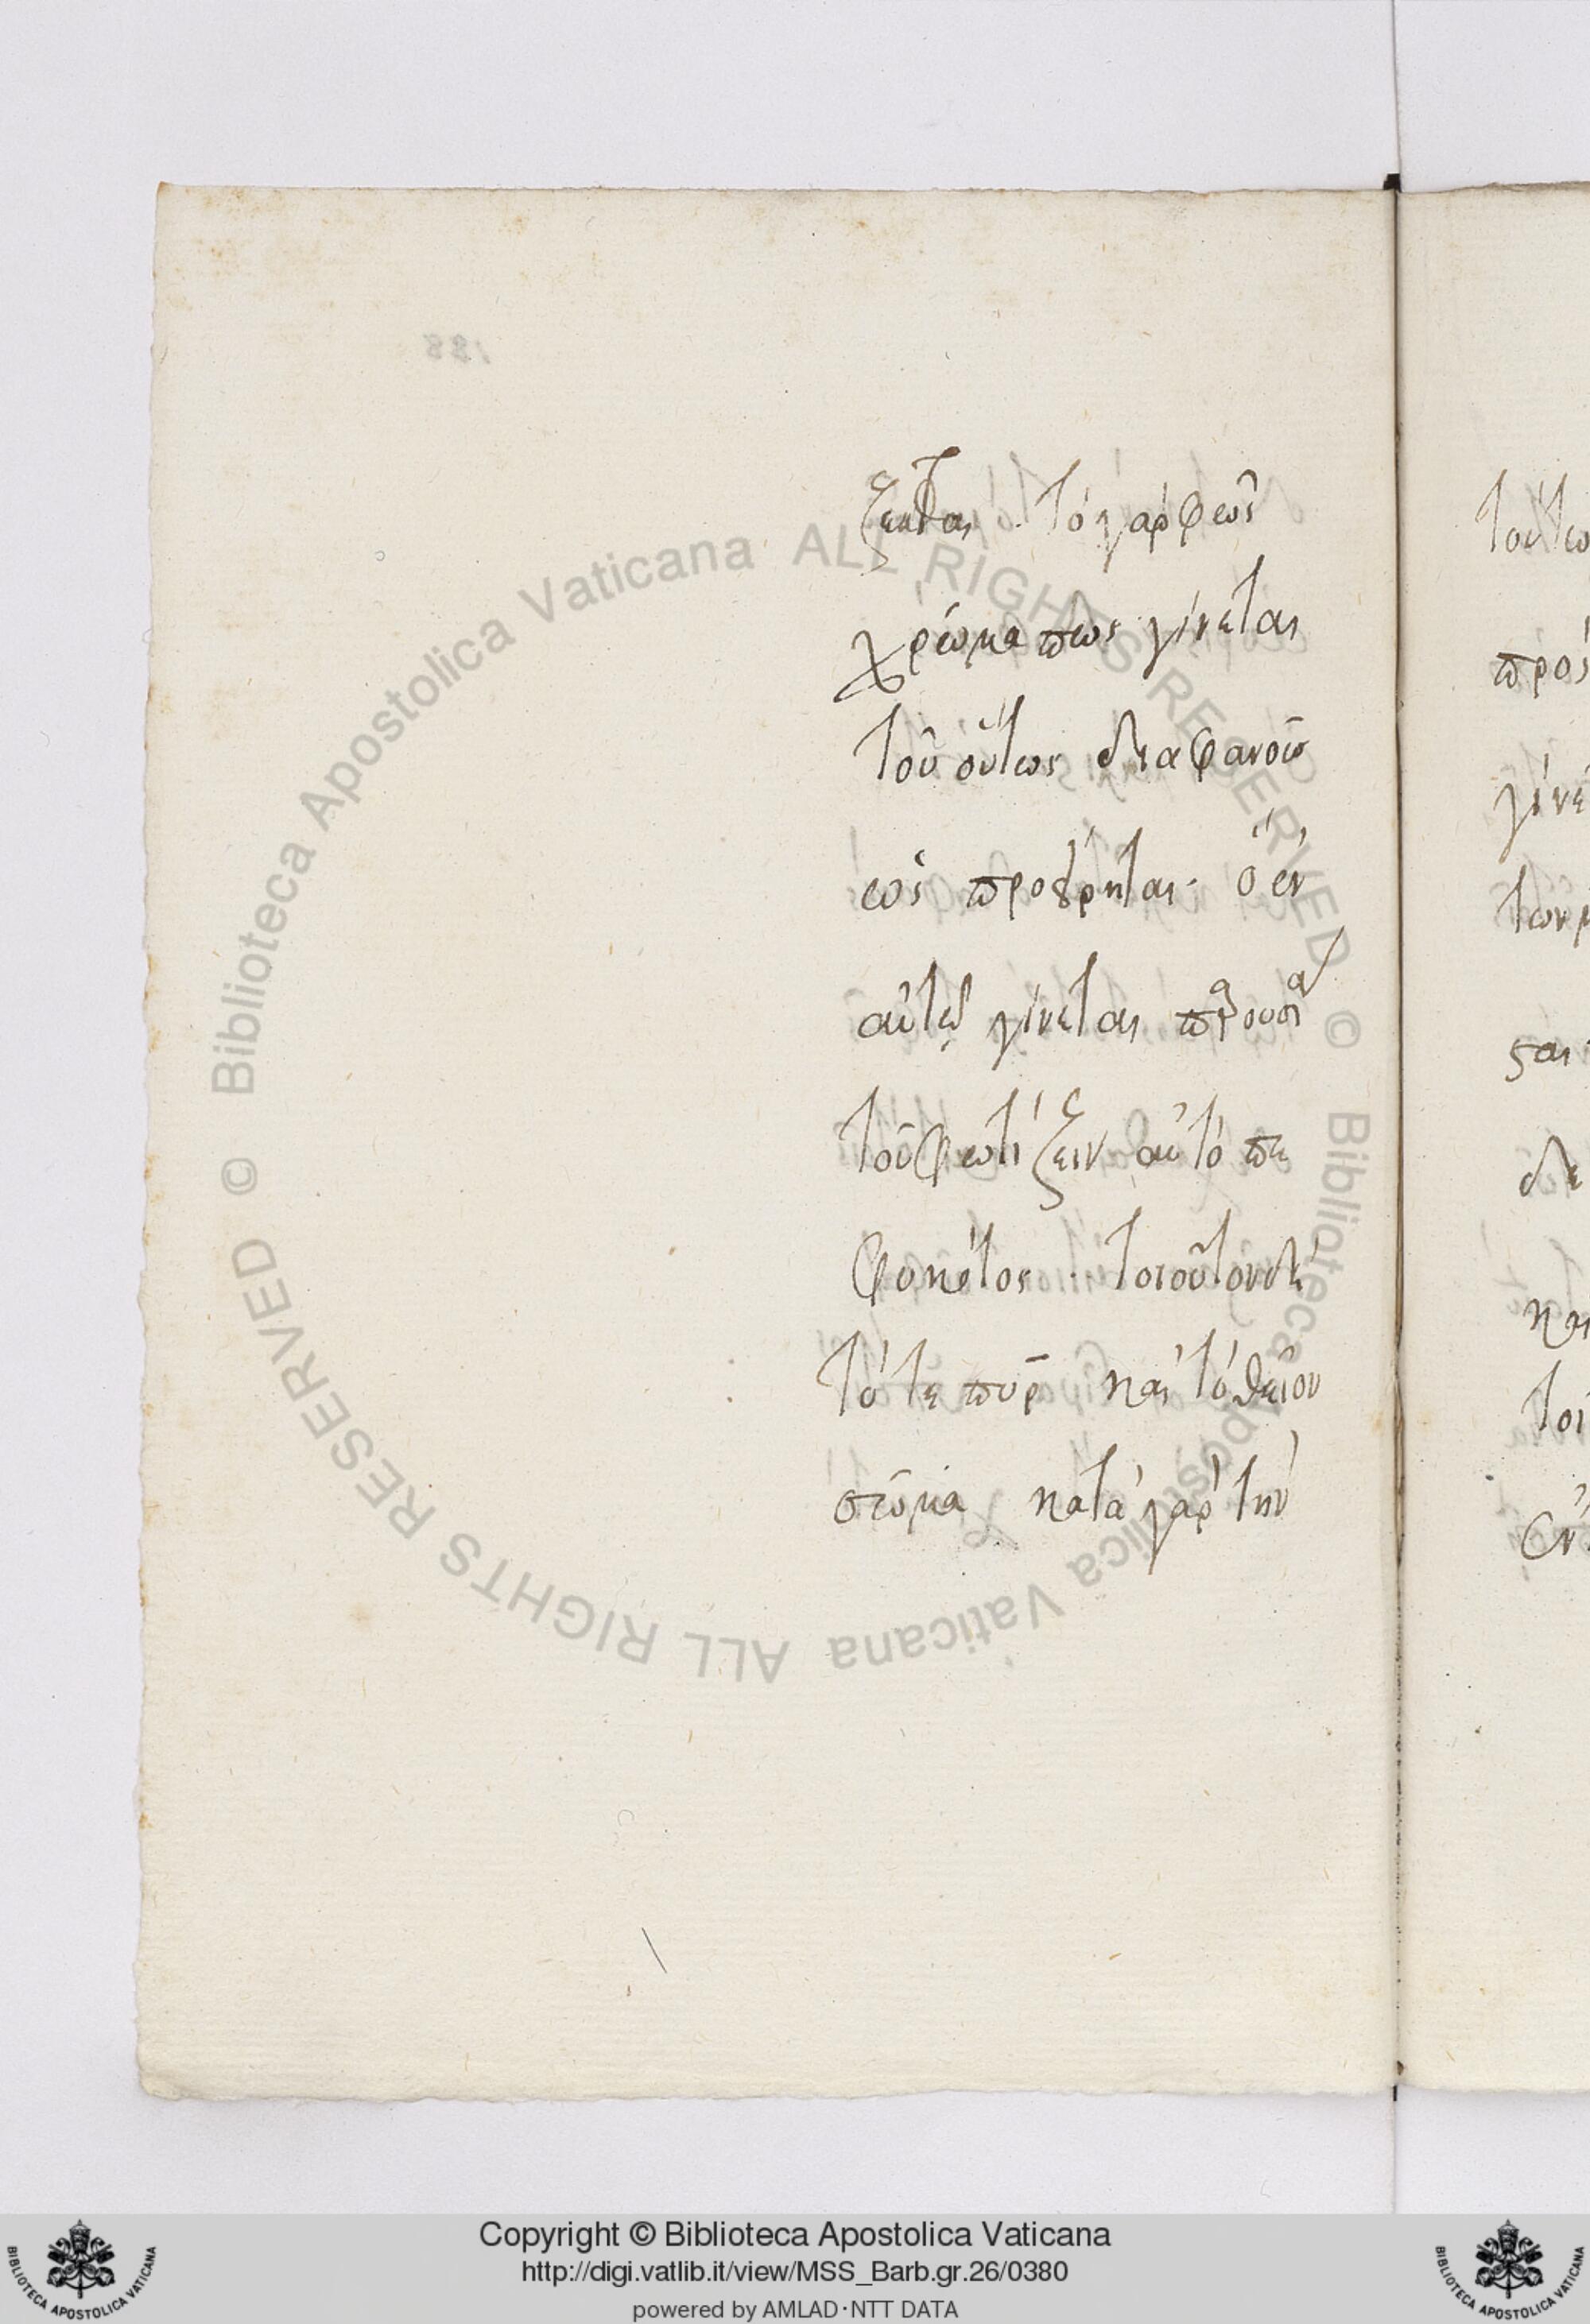 ζεσθαι· τὸ γὰρ φῶς
χρῶμα πως γίνεται
τοῦ οὕτως διαφανοῦς
ὡς προείρηται· ὃ ἐν
αὐτῷ γίνεται παρουσίᾳ
τοῦ φωτίζειν αὐτὸ πε
φυκότος· τοιοῦτον δὲ
τό τε πῦρ καὶ τὸ θεῖον
σῶμα κατὰ γὰρ τὴν
τούτω
πρὸς
γίνε
των
σαι
δε
και
τοι
188
© Biblioteca Apostolica Vaticana ALL RIGHTS RESERVED © Biblioteca Apostolica Vaticana ALL RIGHTS RESERVED
Copyright © Biblioteca Apostolica Vaticana
http://digi.vatlib.it/view/MSS_Barb.gr.26/0380
powered by AMLAD·NTT DATA
BIBLIOTECA APOSTOLICA VATICANA
BIBLIOTECA APOSTOLICA VATICANA